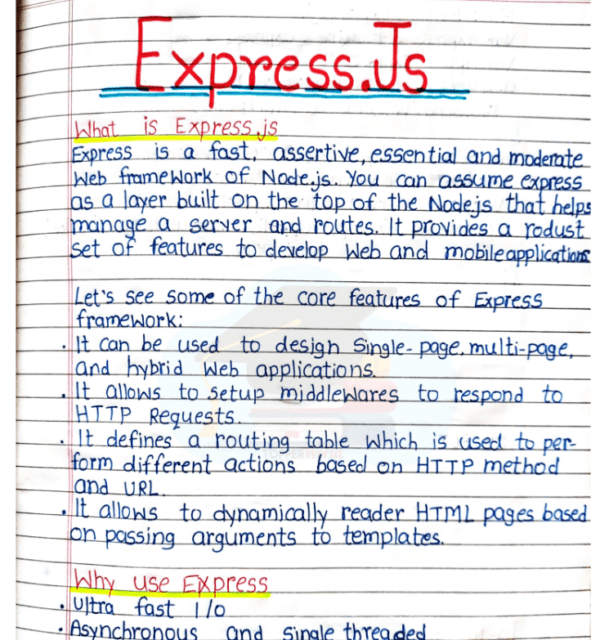 Express.Js
What is Express.js
Express is a fast, assertive, essential and moderate
Web framework of Node.js. You can assume express
as a layer built on the top of the Node.js that helps
manage a server and routes. It provides a rodust
set of features to develop Web and mobile applications
Let's see some of the core features of Express
framework:
. It can be used to design Single-page, multi-page,
and hybrid Web applications.
. It allows to setup middlewares to respond to
HTTP Requests.
. It defines a routing table which is used to per-
form different actions based on HTTP method
and URL.
. It allows to dynamically reader HTML pages based
on passing arguments to templates.
Why use Express
. Ultra fast I/o
. Asynchronous and single threaded